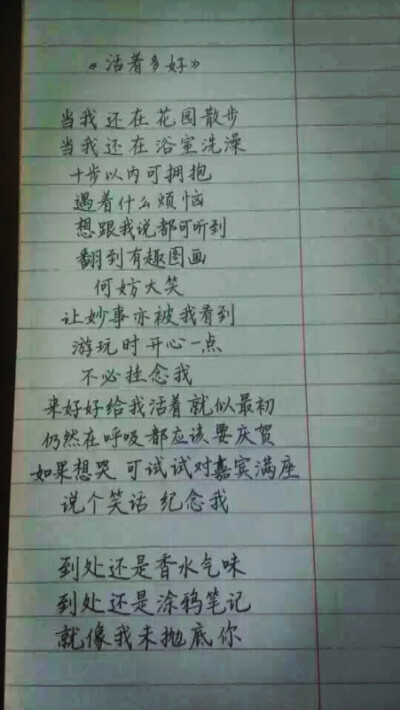 《活着多好》
当我还在花园散步
当我还在浴室洗澡
十步以内可拥抱
遇着什么烦恼
想跟我说都可听到
翻到有趣图画
何妨大笑
让妙事亦被我看到
游玩时开心一点
不必挂念我
来好好给我活着就似最初
仍然在呼吸都应该要庆贺
如果想哭 可试试对嘉宾满座
说个笑话 纪念我
到处还是香水气味
到处还是涂鸦笔记
就像我未抛底你